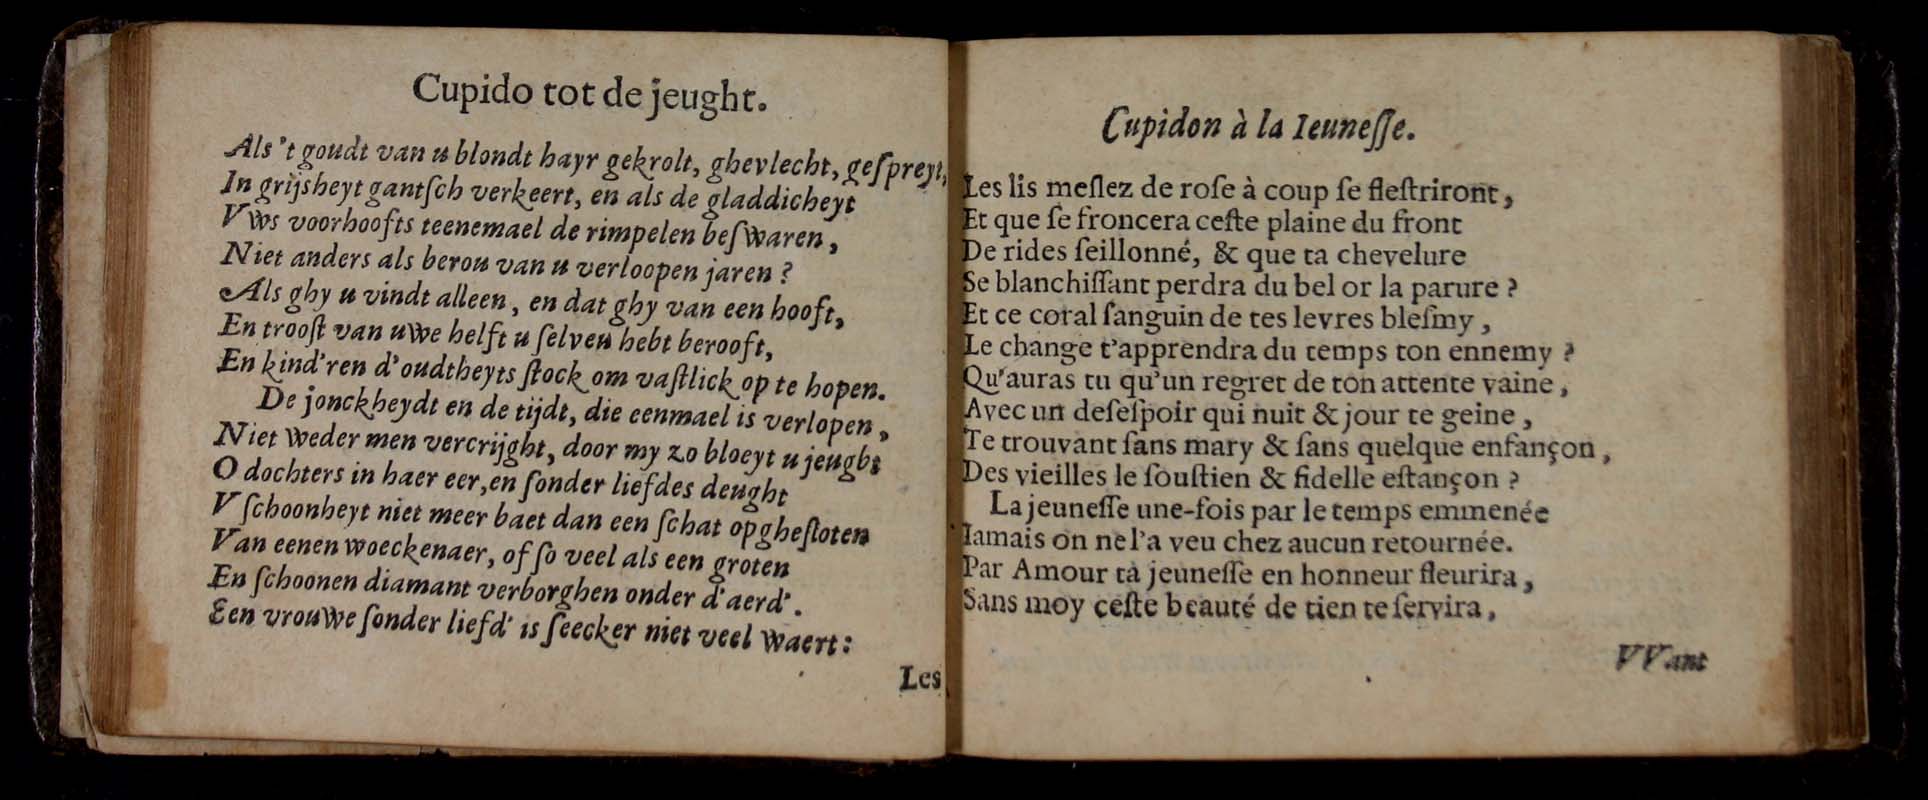 Cupido tot de jeught.
Als 't goudt van u blondt hayr gekrolt, ghevlecht, geſpreyt,
In grijsheyt gantſch verkeert, en als de gladdicheyt
Vws voorhoofts teenemael de rimpelen beſwaren,
Niet anders als berou van u verloopen jaren?
Als ghy u vindt alleen, en dat ghy van een hooft,
En trooſt van uwe helft u ſelven hebt berooft,
En kind'ren d'oudtheyts ſtock om vaſtlick op te hopen.
De jonckheydt en de tijdt, die eenmael is verlopen,
Niet weder men vercrijght, door my zo bloeyt u jeught
O dochters in haer eer, en ſonder liefdes deught
V ſchoonheyt niet meer baet dan een ſchat opgheſloten
Van eenen woeckenaer, of ſo veel als een groten
En ſchoonen diamant verborghen onder d'aerd'.
Een vrouwe ſonder liefd' is ſeecker niet veel waert:
Les
Cupidon à la Ieuneſſe.
Les lis meſlez de roſe à coup ſe fleſtriront,
Et que ſe froncera ceſte plaine du front
De rides ſeillonné, & que ta chevelure
Se blanchiſſant perdra du bel or la parure?
Et ce coral ſanguin de tes levres bleſmy,
Le change t'apprendra du temps ton ennemy?
Qu'auras tu qu'un regret de ton attente vaine,
Avec un deſeſpoir qui nuit & jour te geine,
Te trouvant ſans mary & ſans quelque enfançon,
Des vieilles le ſouſtien & fidelle eſtançon?
La jeuneſſe une-fois par le temps emmenée
Iamais on ne l'a veu chez aucun retournée.
Par Amour ta jeuneſſe en honneur fleurira,
Sans moy ceſte beauté de rien te ſervira,
VVant